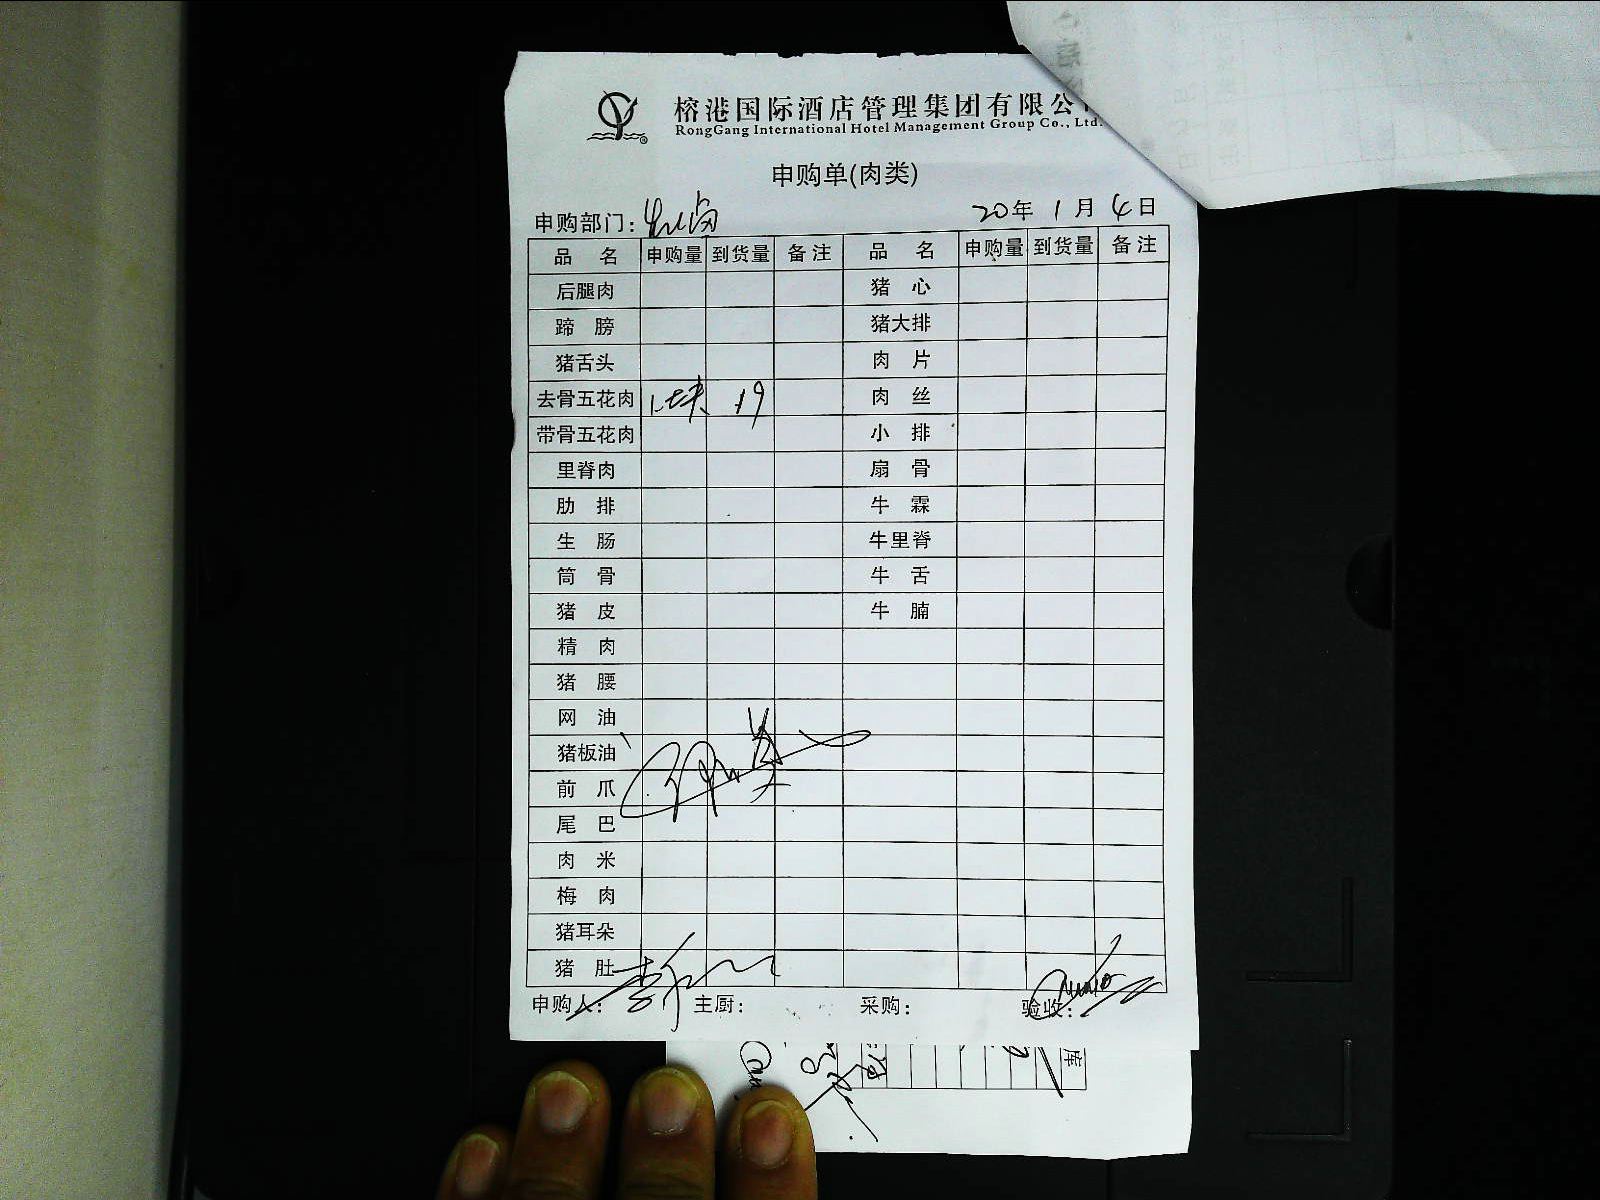 榕港国际酒店管理集团有限公
RongGang International Hotel Management Group Co., Ltd.
申购单(肉类)
申购部门:
20年 1月 4日
品 名 申购量 到货量 备注 品 名 申购量 到货量 备注
后腿肉 猪 心
蹄 膀 猪大排
猪舌头 肉 片
去骨五花肉 19 肉 丝
带骨五花肉 小 排
里脊肉 扇 骨
肋 排 牛 霖
生 肠 牛里脊
筒 骨 牛 舌
猪 皮 牛 腩
精 肉
猪 腰
网 油
猪板油
前 爪
尾 巴
肉 米
梅 肉
猪耳朵
猪 肚
申购人: 主厨: 采购: 验收:
库